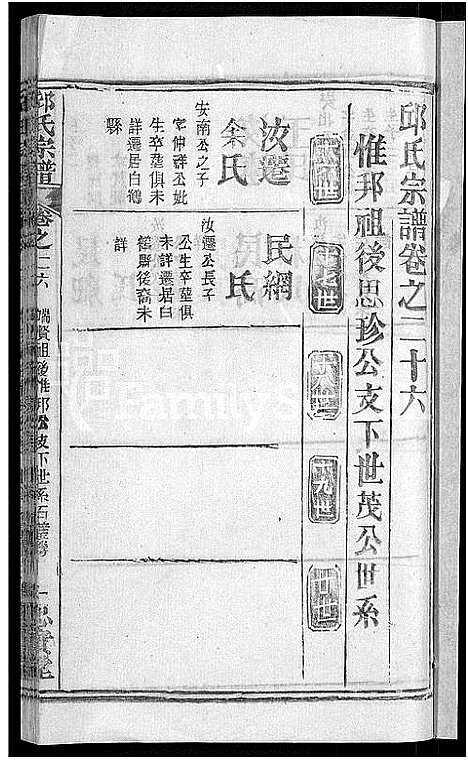 邱氏宗譜卷之二十六
惟邦祖後思珍公支下世茂公世系
十六世
十七世
十八世
十九世
廿世
汝遷
余氏
安南公之子
字仲祥公妣
生卒塟俱未
詳遷居白德
縣
民綱
氏
汝遷公長子
公生卒塟俱
未詳遷居白
馁縣後裔未
詳
邱氏宗譜
卷之二十六
端賢祖後惟邦公支下世系
一
忠實堂
FamilyS